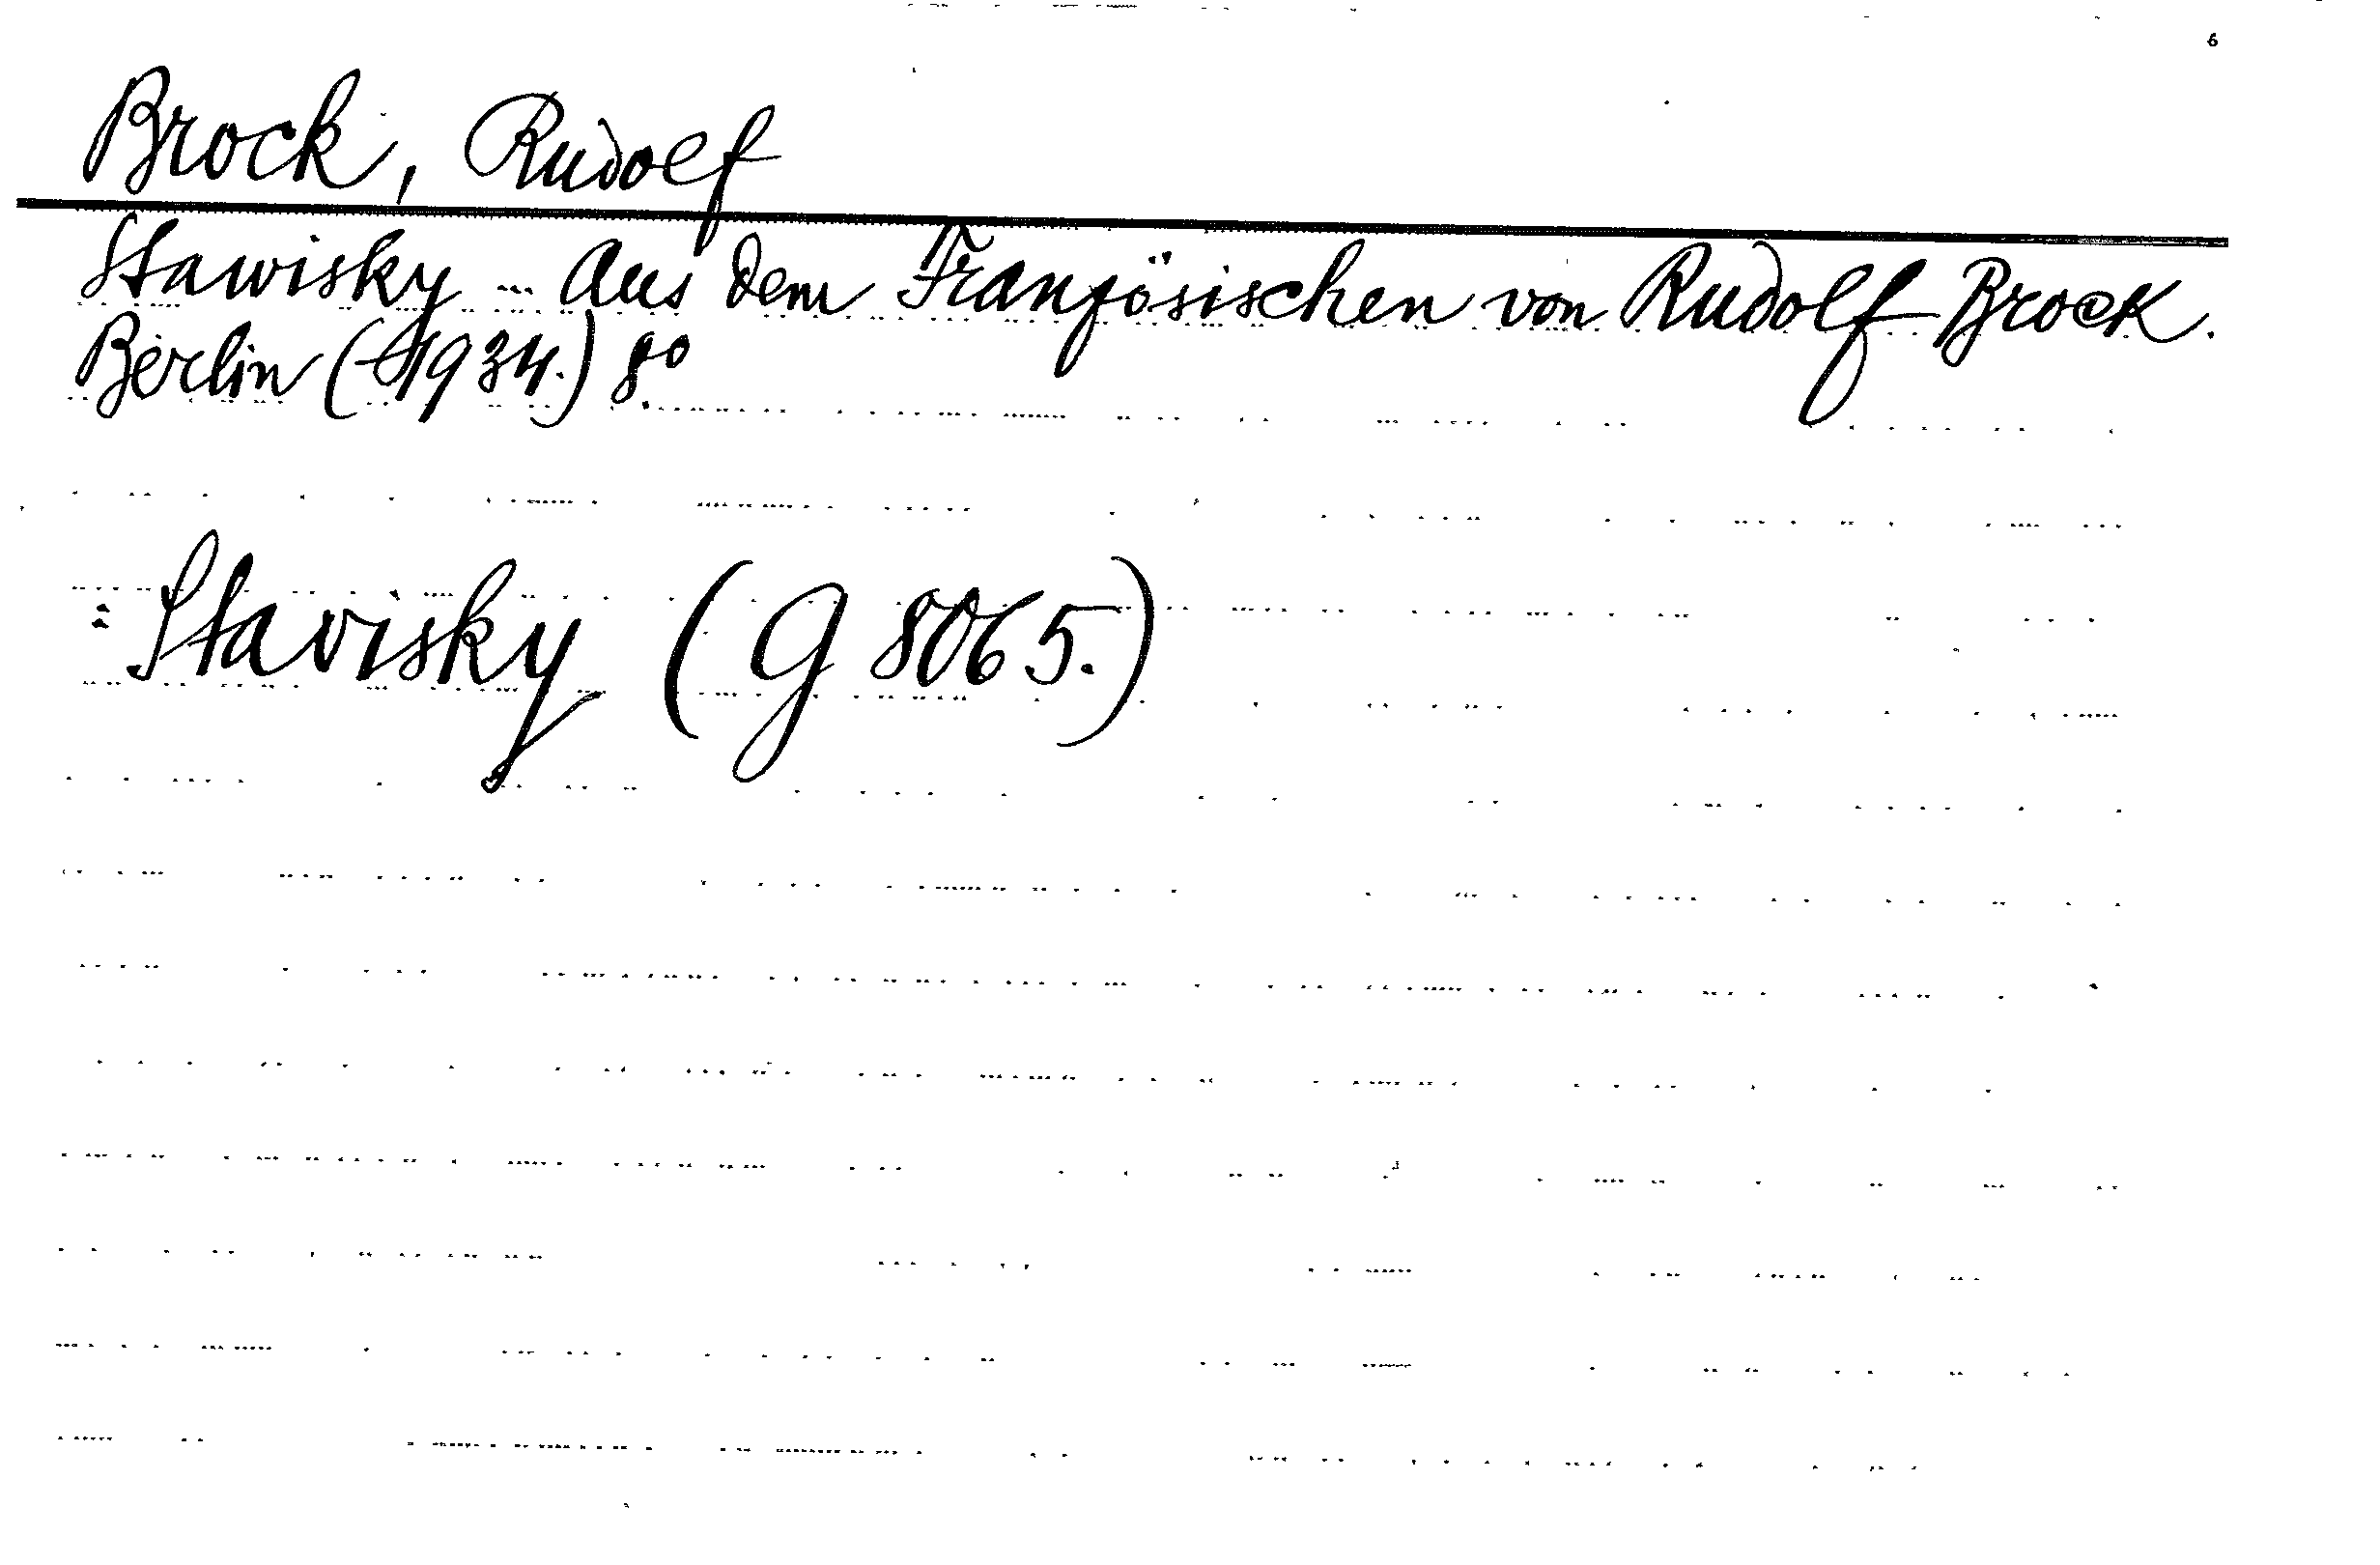 6
Brock, Rudolf
Stawisky - Aus dem Französischen von Rudolf Brock.
Berlin (1934.) 8°.
: Stavisky (G 8065.)